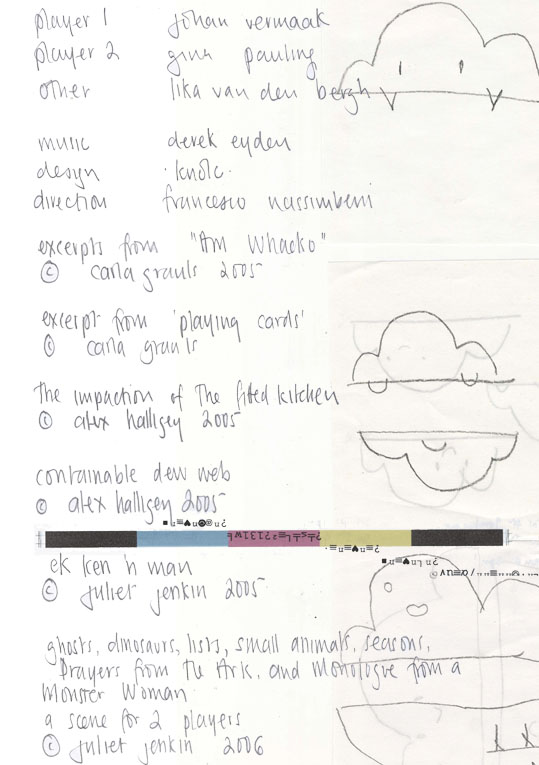 player 1 johan vermaak
player 2 gina pauling
other lika van den bergh
music derek eyden
design knolc
direction francesco nassimbeni
excerpts from "Am Whacko"
© carla grauls 2005
excerpt from 'playing cards'
© carla grauls
the impaction of The fitted kitchen
© alex halligey 2005
containable dew web
© alex halligey 2005
ek ken 'n man
© juliet jenkin 2005
ghosts, dinosaurs, lists, small animals, seasons,
Prayers from the Ark, and Monologue from a
Monster Woman
a scene for 2 players
© juliet jenkin 2006